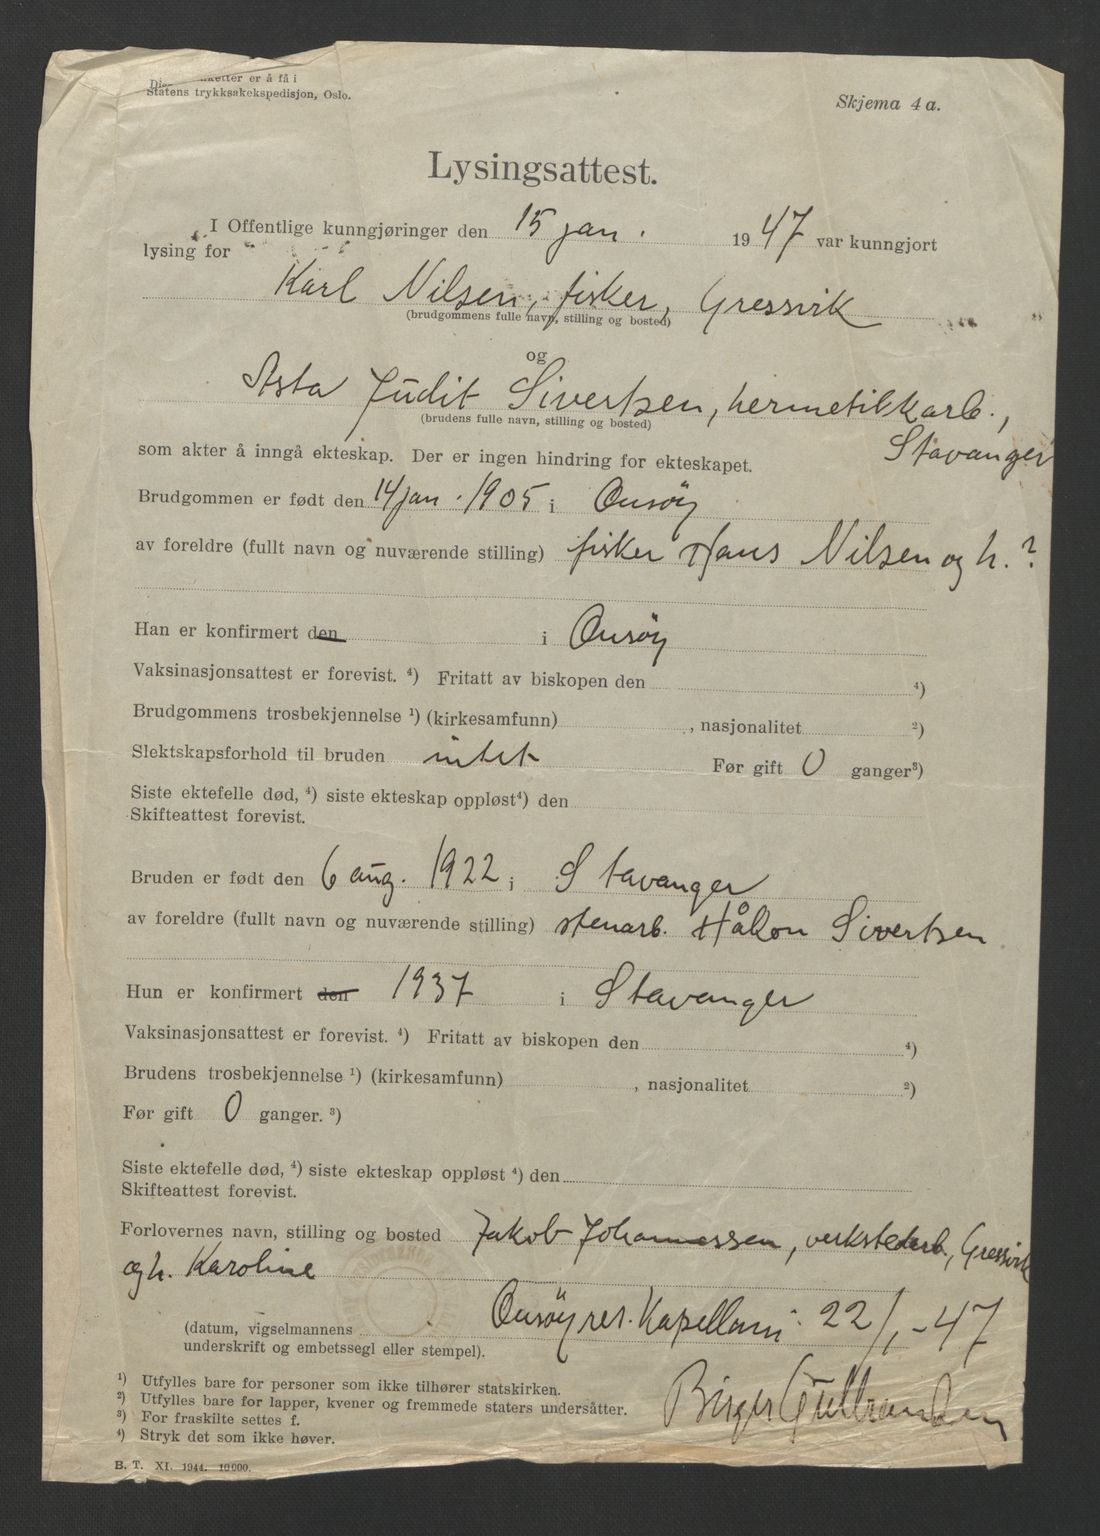 etter er å få i
Statens trykksakekspedisjon, Oslo.
Skjema 4 a.
Lysingsattest.
I Offentlige kunngjøringer den 15 jan. 1947 var kunngjort
lysing for
Karl Nilsen, fisker, Gressvik
(brudgommens fulle navn, stilling og bosted)
og
Asta Judit Sivertsen, hermetikkarb.,
(brudens fulle navn, stilling og bosted)
Stavanger
som akter å inngå ekteskap. Der er ingen hindring for ekteskapet.
Brudgommen er født den 14 jan. 1905 i Onsøy
av foreldre (fullt navn og nuværende stilling) fisker Hans Nilsen og h. ?
Han er konfirmert den i Onsøy
Vaksinasjonsattest er forevist. 4) Fritatt av biskopen den 4)
Brudgommens trosbekjennelse 1) (kirkesamfunn) , nasjonalitet 2)
Slektskapsforhold til bruden intet Før gift 0 ganger 3)
Siste ektefelle død, 4) siste ekteskap oppløst 4) den
Skifteattest forevist.
Bruden er født den 6 aug. 1922 i Stavanger
av foreldre (fullt navn og nuværende stilling) stenarb. Håkon Sivertsen
Hun er konfirmert den 1937 i Stavanger
Vaksinasjonsattest er forevist. 4) Fritatt av biskopen den 4)
Brudens trosbekjennelse 1) (kirkesamfunn) , nasjonalitet 2)
Før gift 0 ganger. 3)
Siste ektefelle død, 4) siste ekteskap oppløst 4) den
Skifteattest forevist.
Forlovernes navn, stilling og bosted Jakob Johannessen, verkstedarb., Gressvik
og h. Karoline
Onsøy res. kapellani 22/1-47
(datum, vigselmannens
underskrift og embetssegl eller stempel).
Birger Gulbrandsen
1) Utfylles bare for personer som ikke tilhører statskirken.
2) Utfylles bare for lapper, kvener og fremmede staters undersåtter.
3) For fraskilte settes f.
4) Stryk det som ikke høver.
B. T. XI. 1944. 10 000.